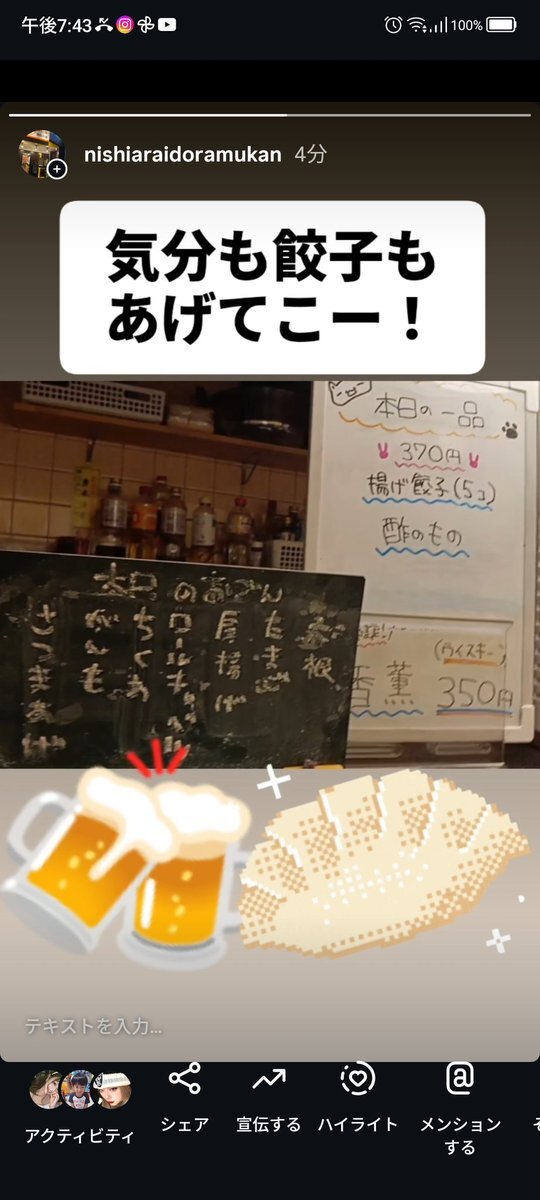 午後7:43
100%
nishiaraidoramukan 4分
気分も餃子も
あげてこー！
本日の一品
370円
揚げ餃子(5コ)
酢のもの
(ウイスキー)
香薫 350円
本日のおでん
大根
たまご
厚揚げ
ロールキャベツ
ちくわ
がんも
さつまあげ
テキストを入力...
アクティビティ
シェア
宣伝する
ハイライト
メンション
する
そ